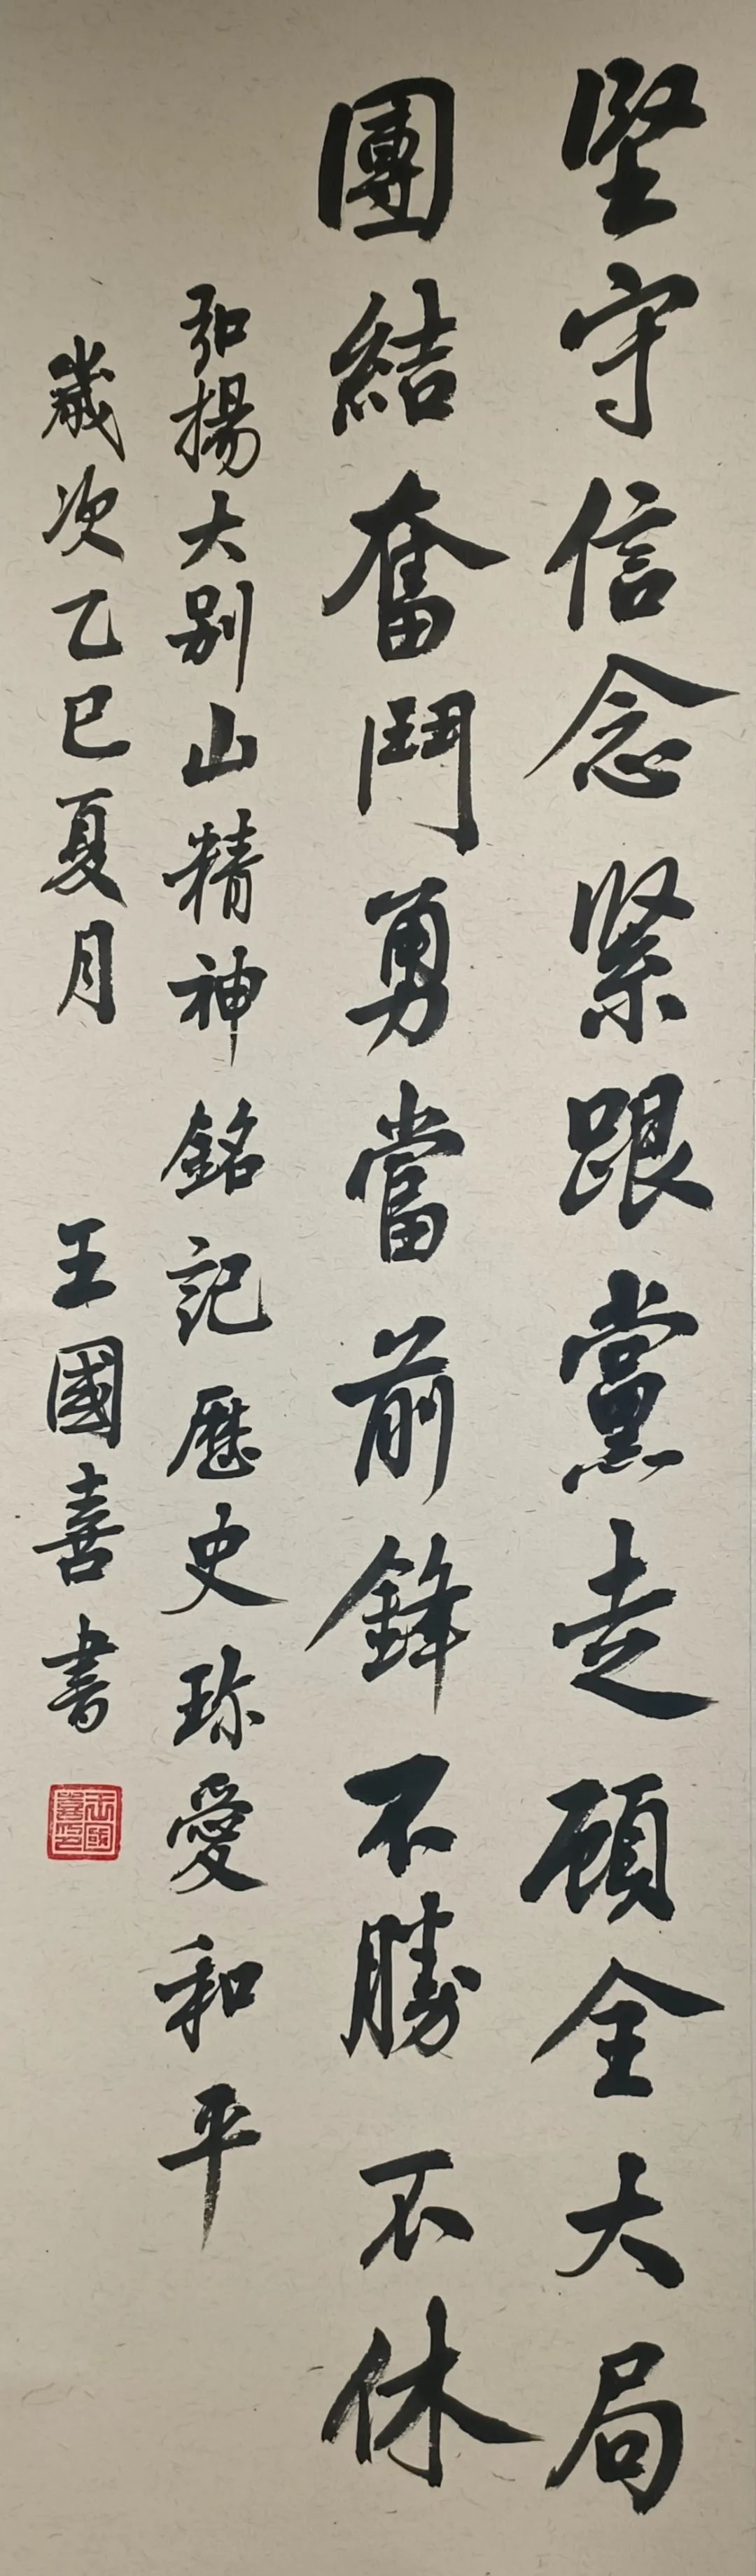 堅守信念緊跟黨走顧全大局
團結奮鬥勇當前鋒不勝不休
弘揚大别山精神銘記歷史珍愛和平
歲次乙巳夏月 王國喜書
王國喜印